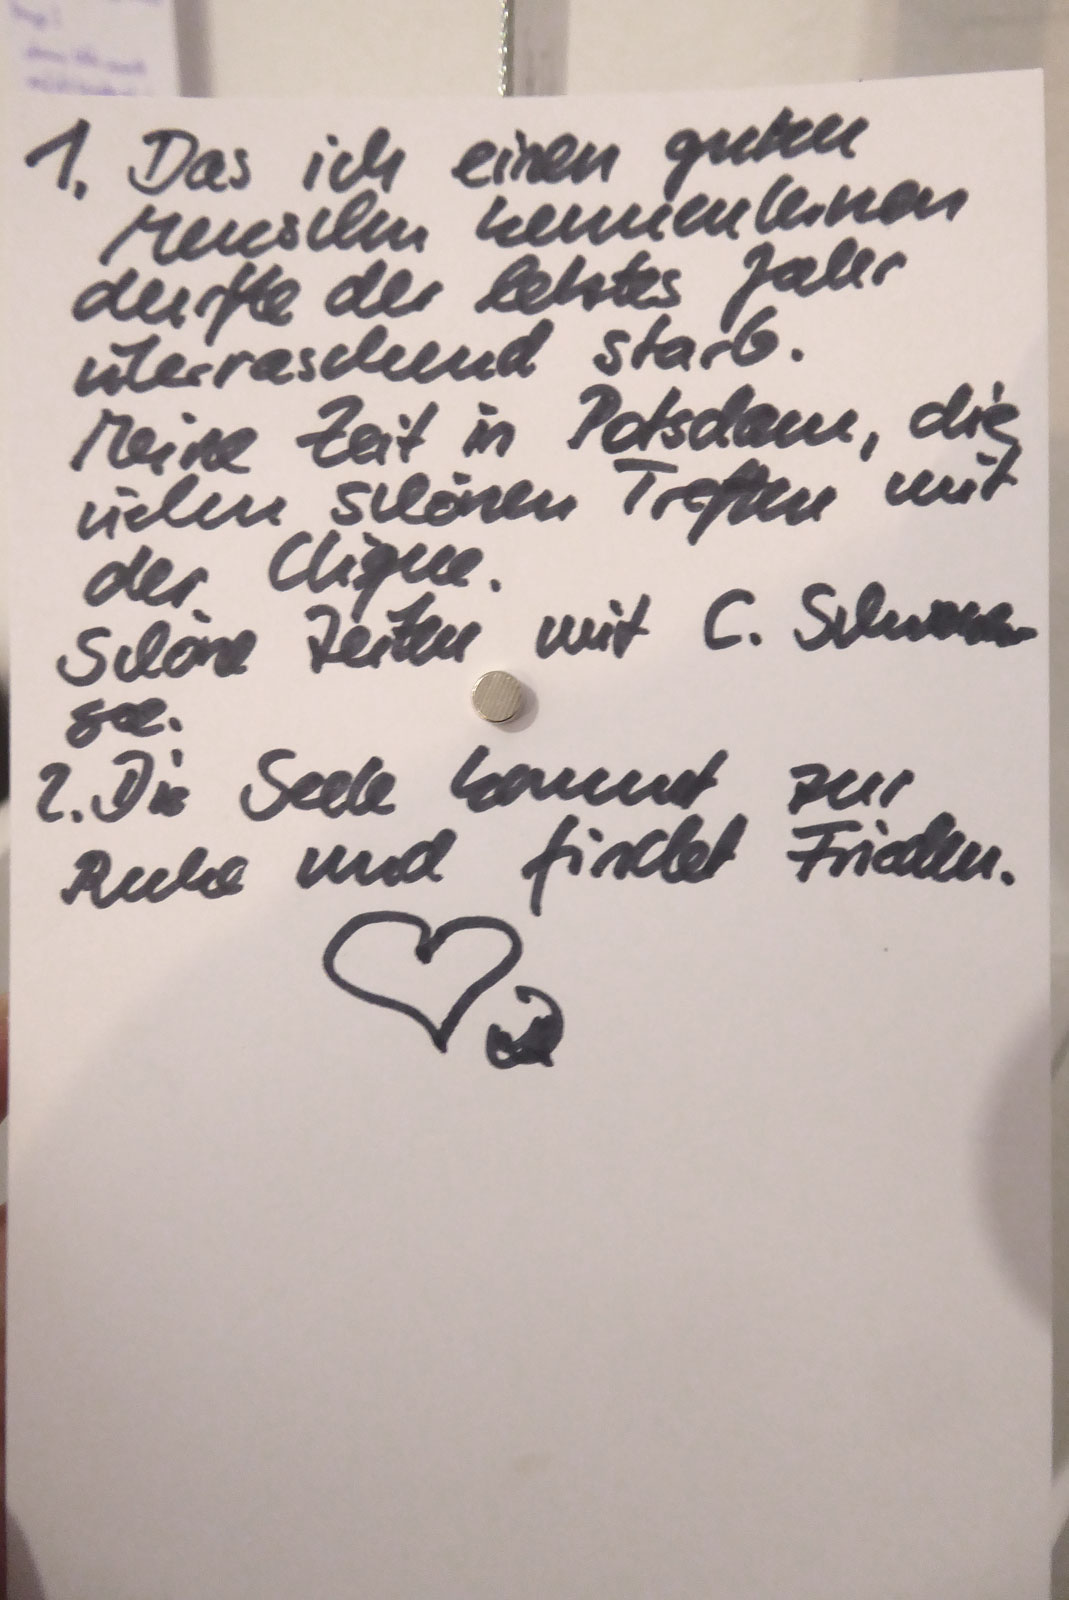 1. Das ich einen guten
Menschen kennenlernen
durfte der letztes Jahr
überraschend starb.
Meine Zeit in Potsdam, die
vielen schönen Treffen mit
der Clique.
Schöne Zeiten mit C. Schwanen
see.
2. Die Seele kommt zur
Ruhe und findet Frieden.